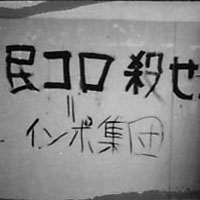 民コロ殺せ
〃
インポ集団